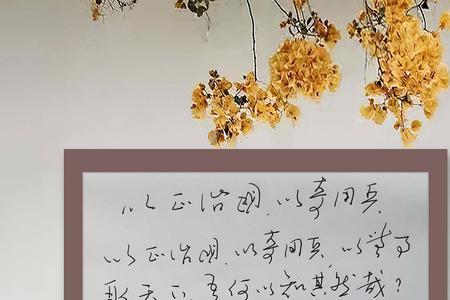 以正治国,以奇用兵
以正治国,以奇用兵,以無事
取天下,吾何以知其然哉?